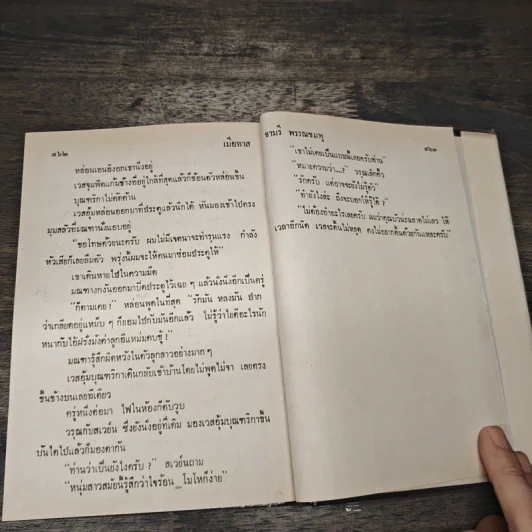 ๘๖๒
เมียทาส
หล่อนเอนอิงอกเขานิ่งอยู่
เวสจุมพิตแก้มข้างที่อยู่ใกล้ที่สุดแล้วก็ช้อนตัวหล่อนขึ้น
บุณฑริกาไม่คัดค้าน
เวสอุ้มหล่อนออกมาที่ประตูแล้วนึกได้ หันมองเข้าไปตรง
มุมสลัวที่มฌานั่งแอบอยู่
"ขอโทษด้วยนะครับ ผมไม่มีเจตนาจะทำรุนแรง กำลัง
หัวเสียก็เลยลืมตัว พรุ่งนี้ผมจะให้คนมาซ่อมประตูให้"
เขาเดินหายไปในความมืด
มฌาทางกงันออกมาปิดประตูไว้เฉย ๆ แล้วนั่งนิ่งอีกเป็นครู่
"ก็ตามเคย !" หล่อนพูดในที่สุด "รักมัน หลงมัน ปาก
ว่าเกลียดอยู่แหม็บ ๆ ก็ยอมไปกับมันอีกแล้ว ไม่รู้ว่าไยดีอะไรนัก
หนากับไอ้ฝรั่งมังค่าลูกอีแหม่มคบชู้ !"
มฌารู้สึกผิดหวังในตัวลูกสาวอย่างมาก ๆ
เวสอุ้มบุณฑริกาเดินกลับเข้าบ้านโดยไม่พูดไม่จา เลยตรง
ขึ้นข้างบนเลยทีเดียว
ครู่หนึ่งต่อมา ไฟในห้องก็ดับวูบ
วรุณกับสเวย์น ซึ่งยังนั่งอยู่ที่เดิม มองเวสอุ้มบุณฑริกาขึ้น
บันไดไปแล้วก็มองตากัน
"ท่านว่าเป็นยังไงครับ ?" สเวย์นถาม
"หนุ่มสาวสมัยนี้รู้สึกว่าใจร้อน โมโหก็ง่าย"
จามรี พรรณชมพู
๘๖๓
"เขาไม่เคยเป็นแบบนี้เลยครับท่าน"
"หมายความว่า...?" วรุณเลิกคิ้ว
"รักครับ แต่อาจจะยังไม่รู้ตัว"
"ทำยังไงล่ะ ถึงจะบอกให้รู้ได้ ?"
"ไม่ต้องทำอะไรเลยครับ ผมว่าคุณบัวน่ะฉลาดไม่เลว ให้
เวลาอีกนิด เวสจะดิ้นไม่หลุด คงไม่อยากดิ้นด้วยกันแหละครับ"